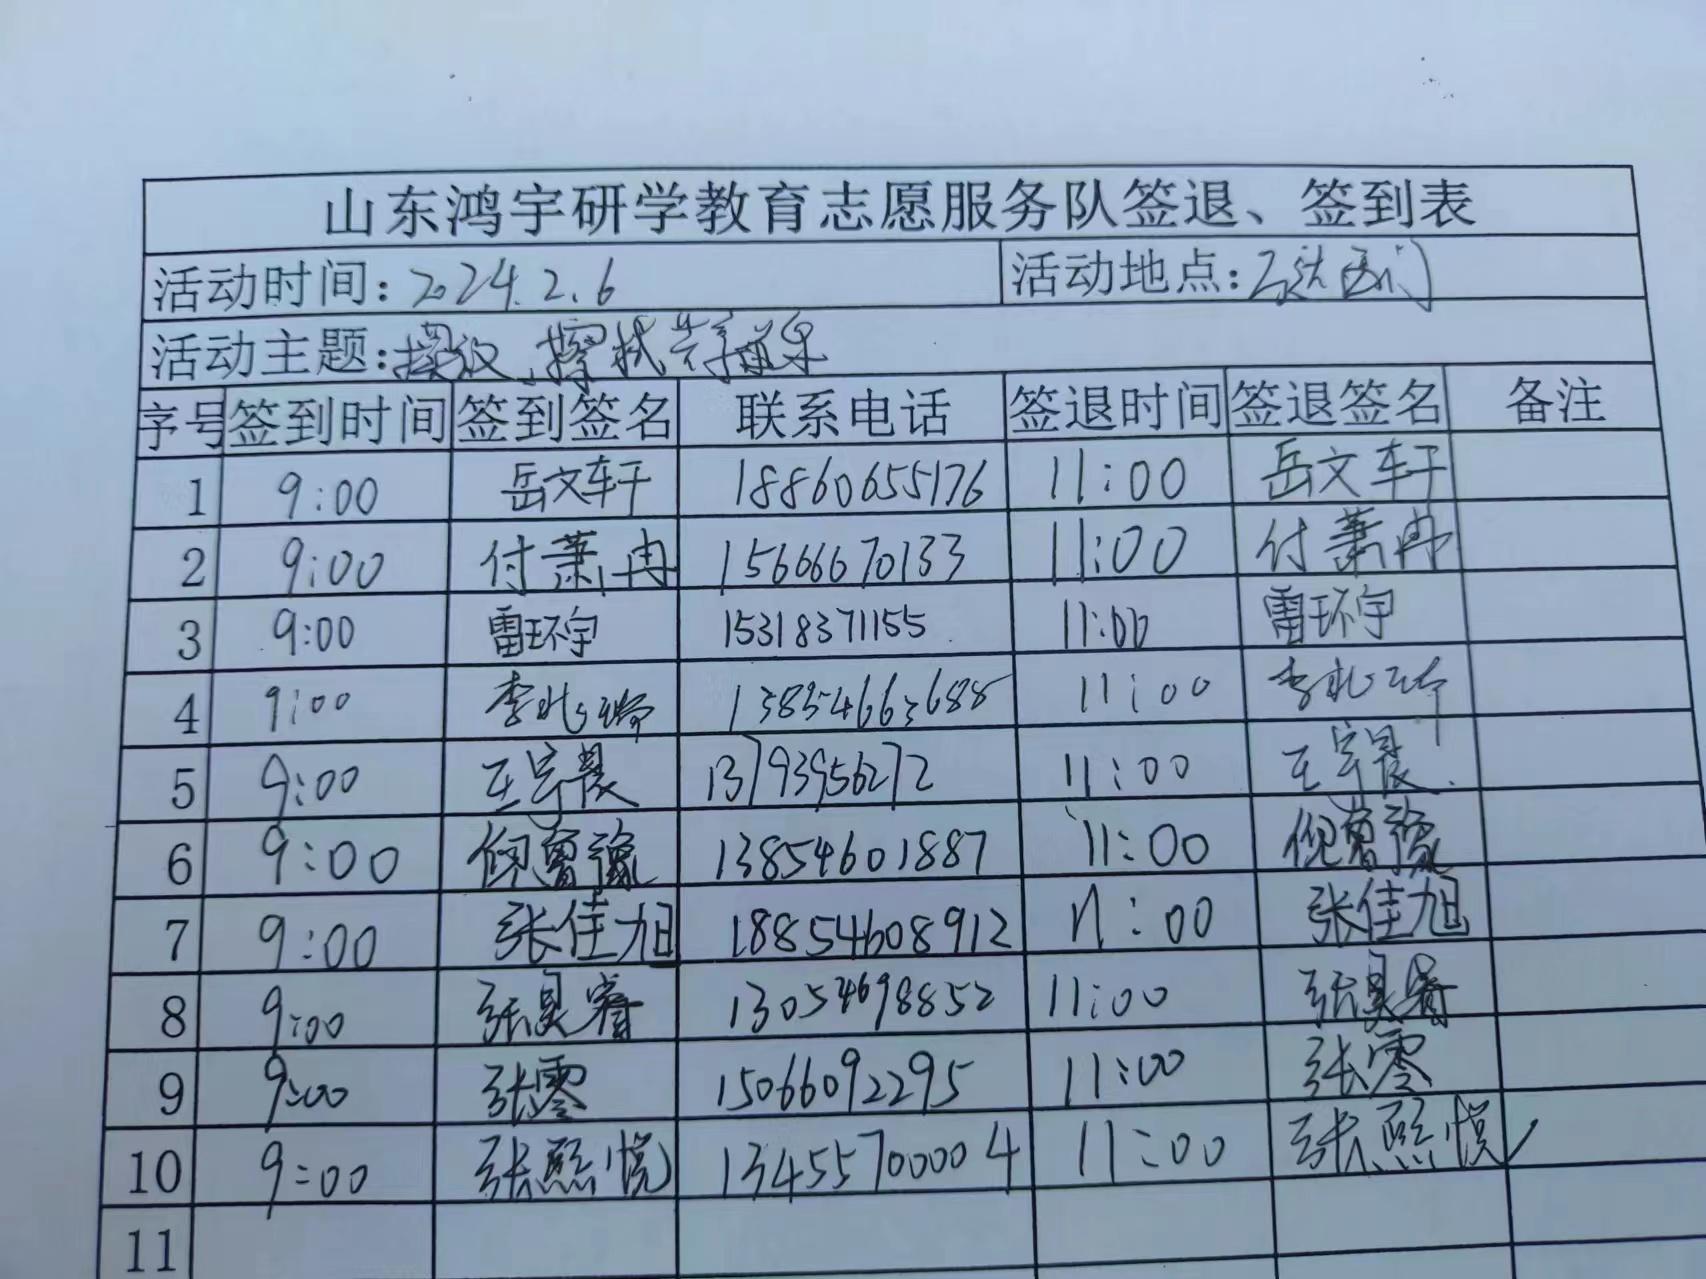 山东鸿宇研学教育志愿服务队签退、签到表
活动时间：2024.2.6 活动地点：
活动主题：擦拭共享单车
序号 签到时间 签到签名 联系电话 签退时间 签退签名 备注
1 9:00 岳文轩 18860655176 11:00 岳文轩
2 9:00 付萧冉 15666670133 11:00 付萧冉
3 9:00 雷环宇 15318371155 11:00 雷环宇
4 9:00 李兆瑞 13854663688 11:00 李兆瑞
5 9:00 王宇晨 13793956272 11:00 王宇晨
6 9:00 倪曾豫 13854601887 11:00 倪曾豫
7 9:00 张佳旭 18854608912 11:00 张佳旭
8 9:00 张昊睿 13054698852 11:00 张昊睿
9 9:00 张零 15066092295 11:00 张零
10 9:00 张熙悦 13455700004 11:00 张熙悦
11